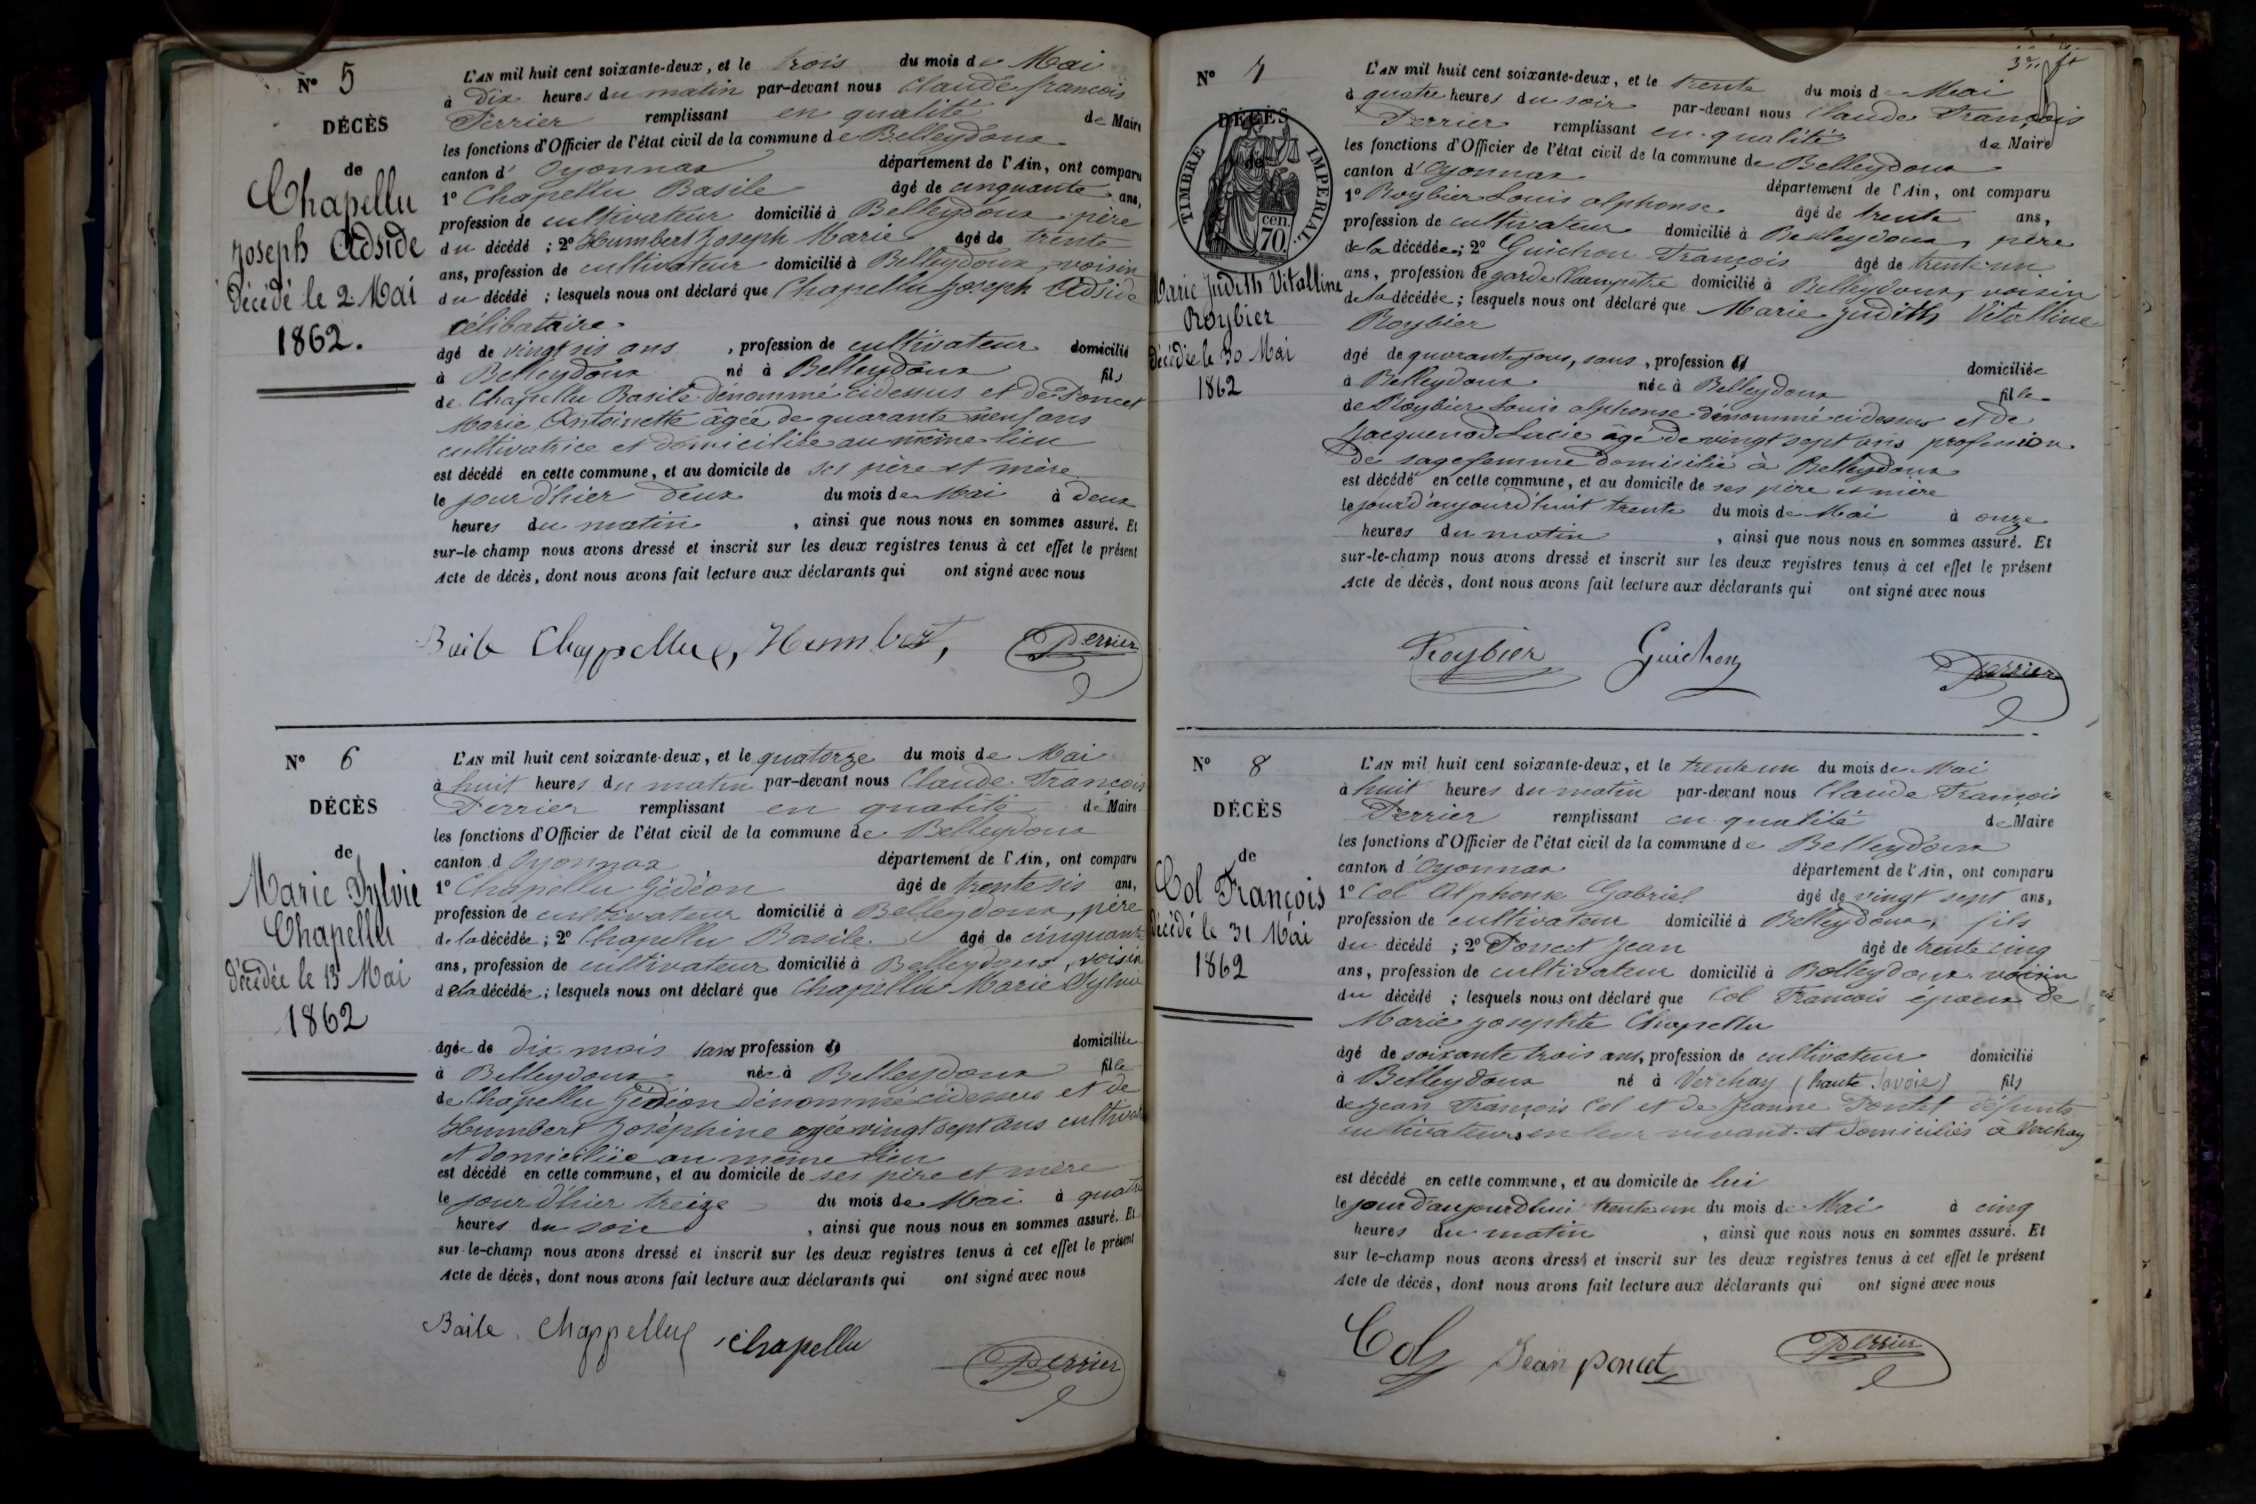 N° 5
DÉCÈS
de
Chapellu
Joseph Adside
décédé le 2 Mai
1862.
L'AN mil huit cent soixante-deux, et le trois du mois de Mai
à dix heures du matin par-devant nous Claude françois
Perrier remplissant en qualité de Maire
les fonctions d'Officier de l'état civil de la commune de Belleydoux
canton d'Oyonnax département de l'Ain, ont comparu
1° Chapellu Basile âgé de cinquante ans,
profession de cultivateur domicilié à Belleydoux père
du décédé ; 2° Humbert Joseph Marie âgé de trente
ans, profession de cultivateur domicilié à Belleydoux, voisin
du décédé ; lesquels nous ont déclaré que Chapellu Joseph Adside
célibataire
âgé de vingt sis ans , profession de cultivateur domicilié
à Belleydoux né à Belleydoux fils
de Chapellu Basile dénommé cidessus et de Poncet
Marie Antoinette âgée de quarante neuf ans
cultivatrice et domiciliée au même lieu
est décédé en cette commune, et au domicile de ses père et mère
le jour d'hier deux du mois de Mai à deux
heures du matin , ainsi que nous nous en sommes assuré. Et
sur-le-champ nous avons dressé et inscrit sur les deux registres tenus à cet effet le présent
Acte de décès, dont nous avons fait lecture aux déclarants qui ont signé avec nous
Chappellu, Humbert, Perrier
N° 6
DÉCÈS
de
Marie Sylvie
Chapellu
décédée le 13 Mai
1862
L'AN mil huit cent soixante-deux, et le quatorze du mois de Mai
à huit heures du matin par-devant nous Claude François
Perrier remplissant en qualité de Maire
les fonctions d'Officier de l'état civil de la commune de Belleydoux
canton d'Oyonnax département de l'Ain, ont comparu
1° Chapellu Gédéon âgé de trente sis ans,
profession de cultivateur domicilié à Belleydoux, père
de la décédée ; 2° Chapellu Basile âgé de cinquante
ans, profession de cultivateur domicilié à Belleydoux, voisin
de la décédée ; lesquels nous ont déclaré que Chapellu Marie Sylvie
âgée de dix mois sans profession domiciliée
à Belleydoux née à Belleydoux fille
de Chapellu Gédéon dénommé cidessus et de
Humbert Joséphine agée vingt sept ans
et domiciliée au même lieu
est décédé en cette commune, et au domicile de ses père et mère
le jour d'hier treize du mois de Mai à quatre
heures du soir , ainsi que nous nous en sommes assuré. Et
sur-le-champ nous avons dressé et inscrit sur les deux registres tenus à cet effet le présent
Acte de décès, dont nous avons fait lecture aux déclarants qui ont signé avec nous
Chappellu Chapellu Perrier
N° 7
DÉCÈS
de
TIMBRE IMPERIAL
cen.
70
Marie Judith Vitalline
Roybier
décédée le 30 Mai
1862
L'AN mil huit cent soixante-deux, et le trente du mois de Mai
à quatre heures du soir par-devant nous Claude François
Perrier remplissant en qualité de Maire
les fonctions d'Officier de l'état civil de la commune de Belleydoux
canton d'Oyonnax département de l'Ain, ont comparu
1° Roybier Louis alphonse âgé de trente ans,
profession de cultivateur domicilié à Belleydoux, père
de la décédée ; 2° Guichon François âgé de trente un
ans, profession de garde Champêtre domicilié à Belleydoux, voisin
de la décédée ; lesquels nous ont déclaré que Marie Judith Vitalline
Roybier
âgé de quarante jours, sans , profession domiciliée
à Belleydoux née à Belleydoux fille
de Roybier Louis alphonse dénommé cidessus et de
Jacquenod Lucie âgé de vingt sept ans profession
de sagefemme domicilié à Belleydoux
est décédé en cette commune, et au domicile de ses père et mère
le jour d'aujourd'huit trente du mois de Mai à onze
heures du matin , ainsi que nous nous en sommes assuré. Et
sur-le-champ nous avons dressé et inscrit sur les deux registres tenus à cet effet le présent
Acte de décès, dont nous avons fait lecture aux déclarants qui ont signé avec nous
Roybier Guichon Perrier
N° 8
DÉCÈS
de
Col François
décédé le 31 Mai
1862
L'AN mil huit cent soixante-deux, et le trente un du mois de Mai
à huit heures du matin par-devant nous Claude François
Perrier remplissant en qualité de Maire
les fonctions d'Officier de l'état civil de la commune de Belleydoux
canton d'Oyonnax département de l'Ain, ont comparu
1° Col Alphonse Gabriel âgé de vingt sept ans,
profession de cultivateur domicilié à Belleydoux, fils
du décédé ; 2° Poncet Jean âgé de trente cinq
ans, profession de cultivateur domicilié à Belleydoux voisin
du décédé ; lesquels nous ont déclaré que Col François époux de
Marie Josephte Chapellu
âgé de soixante trois ans, profession de cultivateur domicilié
à Belleydoux né à Verchay (haute Savoie) fils
de Jean François Col et de Jeanne défunts
cultivateurs en leur vivant et domiciliés à Verchay
est décédé en cette commune, et au domicile de lui
le jour d'aujourd'hui trente un du mois de Mai à cinq
heures du matin , ainsi que nous nous en sommes assuré. Et
sur le-champ nous avons dressé et inscrit sur les deux registres tenus à cet effet le présent
Acte de décès, dont nous avons fait lecture aux déclarants qui ont signé avec nous
Col Jean poncet Perrier